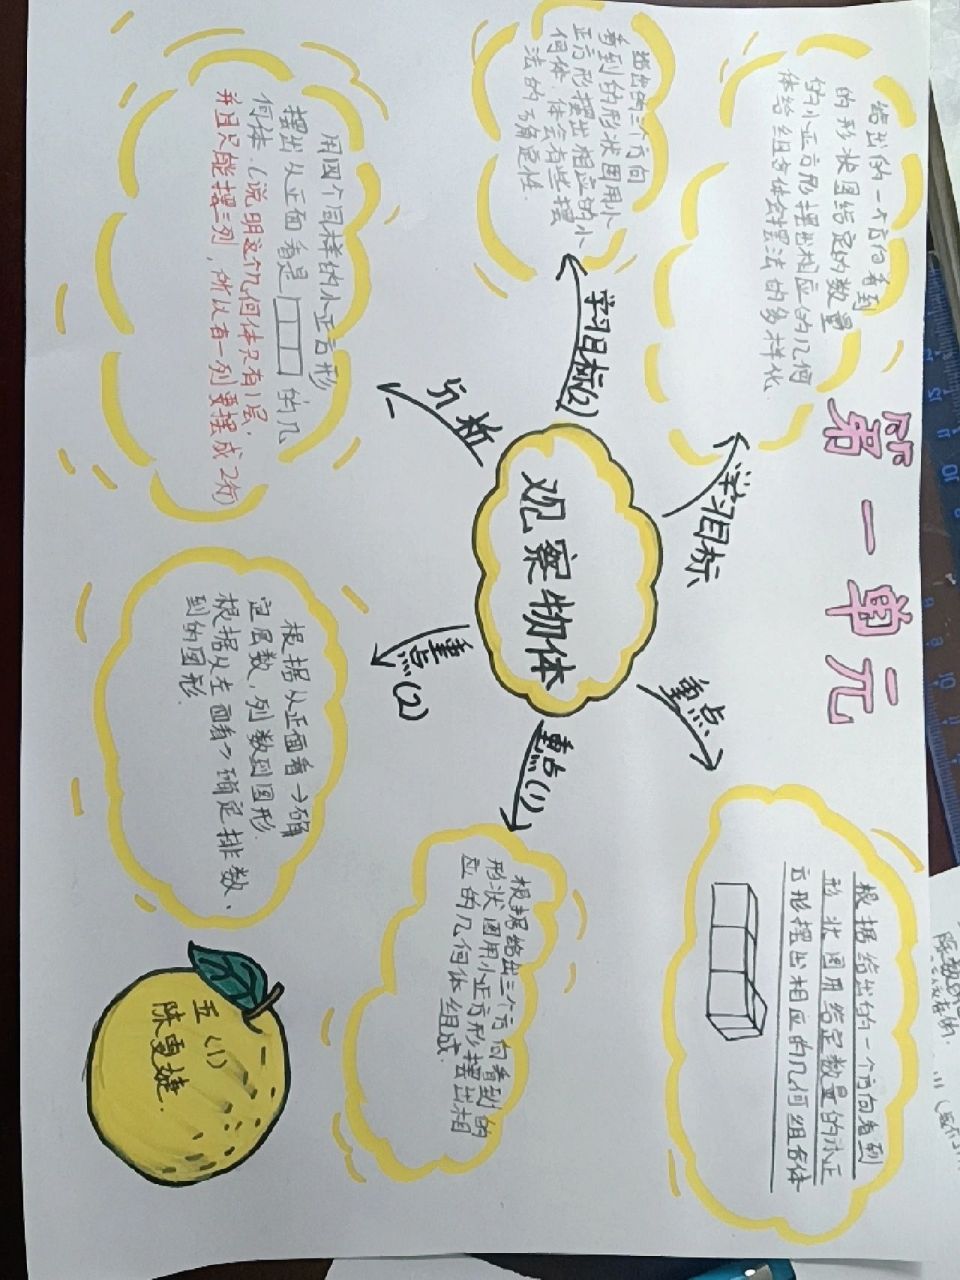 第一单元
观察物体
学习目标
给出的一个方向看到
的形状图给定的数量
的小正方形摆出相应的几何
体给组合体会摆法的多样化.
学习目标(2)
给出的三个方向
看到的形状图用小
正方形摆出相应的小
何体.体会有些摆
法的确定性.
分析
用四个同样的小正方形
摆出从正面看是 的几
何体.(说明这个几何体只有1层,
并且只能摆三列,所以有一列要摆成2行)
重点
根据给出的一个方向看到
形状图用给定数量的小正
方形摆出相应的几何组合体
重点(1)
根据给出三个方向看到的
形状图用小正方形摆出相
应的几何体组成.
重点(2)
根据从正面看→确
定层数,列数到图形.
根据从左面看→确定排数、
到的图形.
五(1)
陈雯婕.